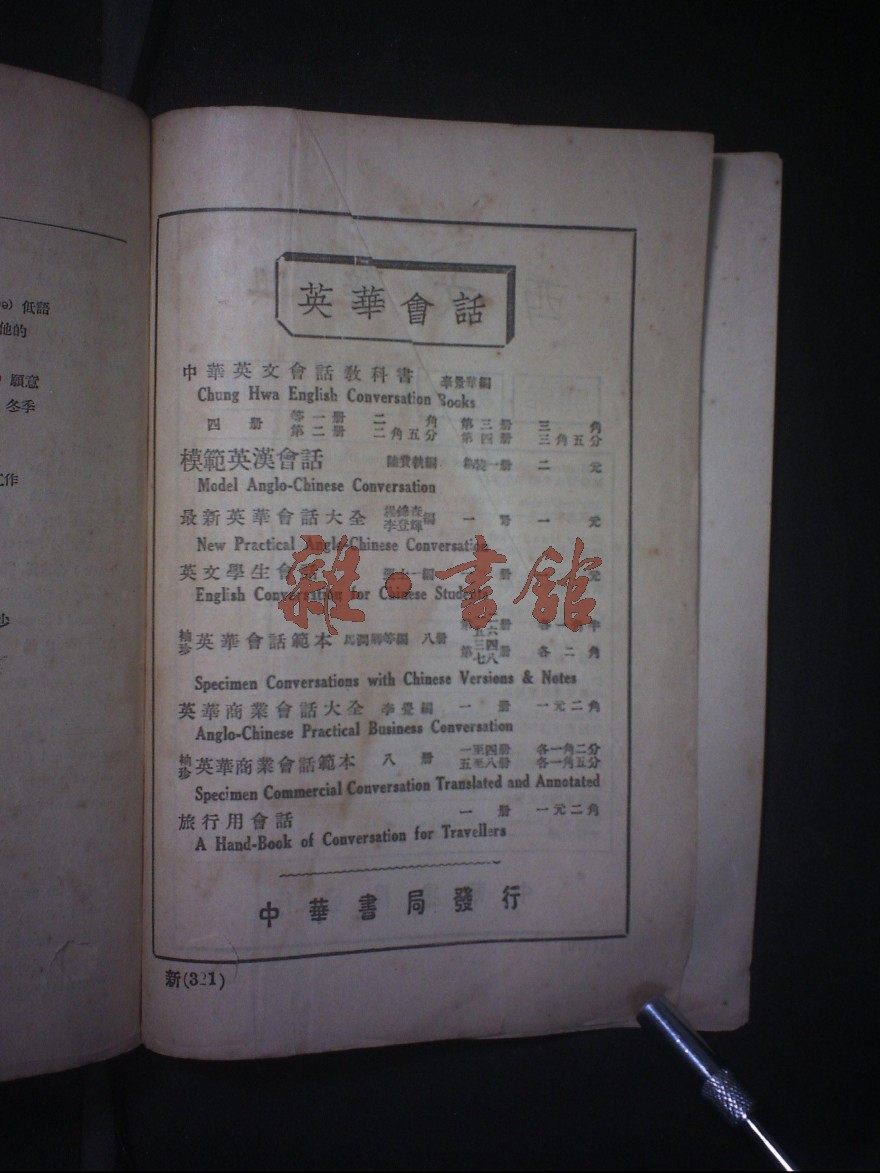 低語
他的
願意
冬季
工作
英華會話
中華英文會話教科書 李景華編
Chung Hwa English Conversation Books
四 册 第一册 二 角 第三册 三 角
第二册 二角五分 第四册 三角五分
模範英漢會話 陸費執編 一册 二 元
Model Anglo-Chinese Conversation
最新英華會話大全 李登輝 編 一 册 一 元
New Practical Anglo-Chinese Conversation
英文學生會話 編 册 元
English Conversation for Chinese Students
袖珍 英華會話範本 馬潤卿等編 八册 五六册
第三四七八册 各二角
Specimen Conversations with Chinese Versions & Notes
英華商業會話大全 李 編 一 册 一元二角
Anglo-Chinese Practical Business Conversation
袖珍 英華商業會話範本 八 册 一至四册 各一角二分
五至八册 各一角五分
Specimen Commercial Conversation Translated and Annotated
旅行用會話 一 册 一元二角
A Hand-Book of Conversation for Travellers
中華書局發行
新(321)
雜·書館